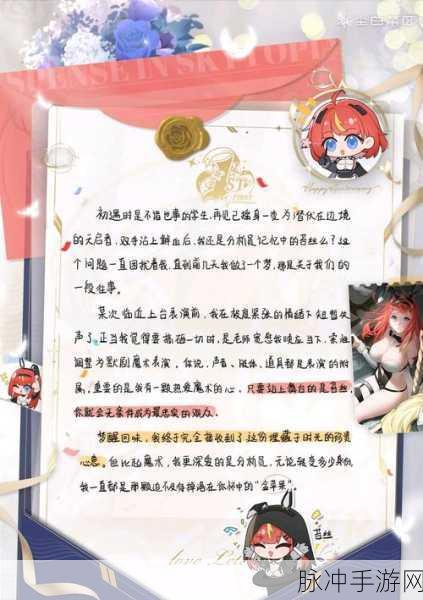 SUSPENSE IN SKYTOPIA
1ST
Happy Anniversary
初遇时是不谙世事的学生,再见已摇身一变为潜伏在边境
的天启者,双手沾上鲜血后,我还是分析员记忆中的苔丝么?这
个问题一直困扰着我,直到前几天我做了一个梦,那是关于我们的
一段往事。
某次临近上台表演前,我在极度紧张的情绪下短暂失
声了,正当我觉得要搞砸一切时,是老师
调整为默剧魔术表演。你说,声音、肢体、道具都是表演的附
属,重要的是我有一颗热爱魔术的心。只要站上舞台的是苔丝,
你就会无条件成为最忠实的观众。
梦醒回味,我终于完全接收到了这份埋藏于时光的珍贵
心意。但比起魔术,我更深爱的是分析员,无论我变多少身份,
我一直都是那颗迫不及待掉落在你怀中的“金苹果”。
苔丝
love Letter
脉冲手游网